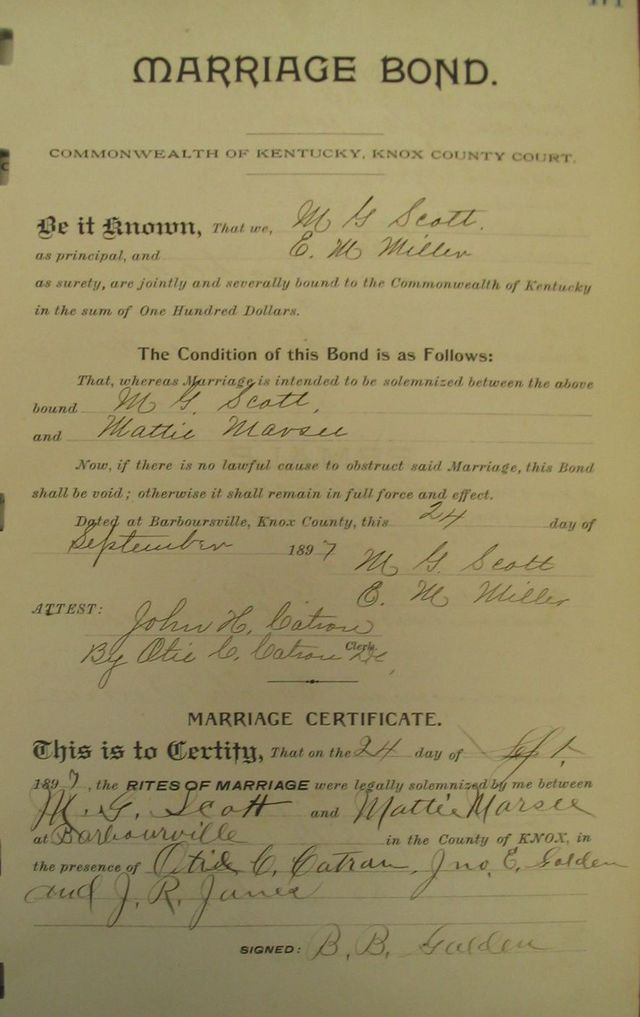 MARRIAGE BOND.
COMMONWEALTH OF KENTUCKY, KNOX COUNTY COURT.
Be it Known, That we, M G Scott.
as principal, and E. M Miller
as surety, are jointly and severally bound to the Commonwealth of Kentucky
in the sum of One Hundred Dollars.
The Condition of this Bond is as Follows:
That, whereas Marriage is intended to be solemnized between the above
bound M G. Scott,
and Mattie Marsee
Now, if there is no lawful cause to obstruct said Marriage, this Bond
shall be void; otherwise it shall remain in full force and effect.
Dated at Barboursville, Knox County, this 24 day of
September 1897
M G. Scott
E. M Miller
ATTEST:
John H. Catron
Clerk.
By Otie C. Catron DC
MARRIAGE CERTIFICATE.
This is to Certify, That on the 24 day of Sept.
1897, the RITES OF MARRIAGE were legally solemnized by me between
M. G. Scott and Mattie Marsee
at Barbourville in the County of KNOX, in
the presence of Otie C. Catron, Jno. E. Golden
and J. R. Jones
SIGNED: B. B. Golden